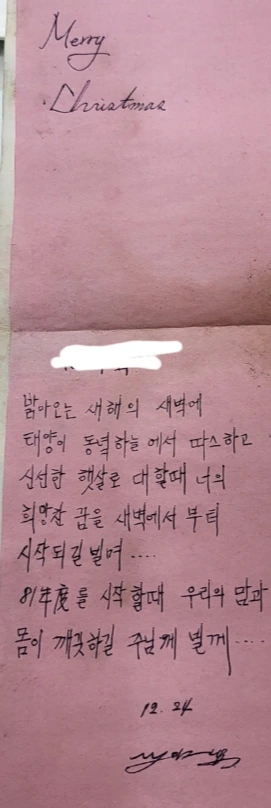 Merry
Christmas
밝아오는 새해의 새벽에
태양이 동녘하늘에서 따스하고
신선한 햇살로 대할때 너의
희망찬 꿈을 새벽에서 부터
시작되길 빌며....
81年度를 시작할때 우리의 맘과
몸이 깨끗하길 주님께 빌께....
12. 24